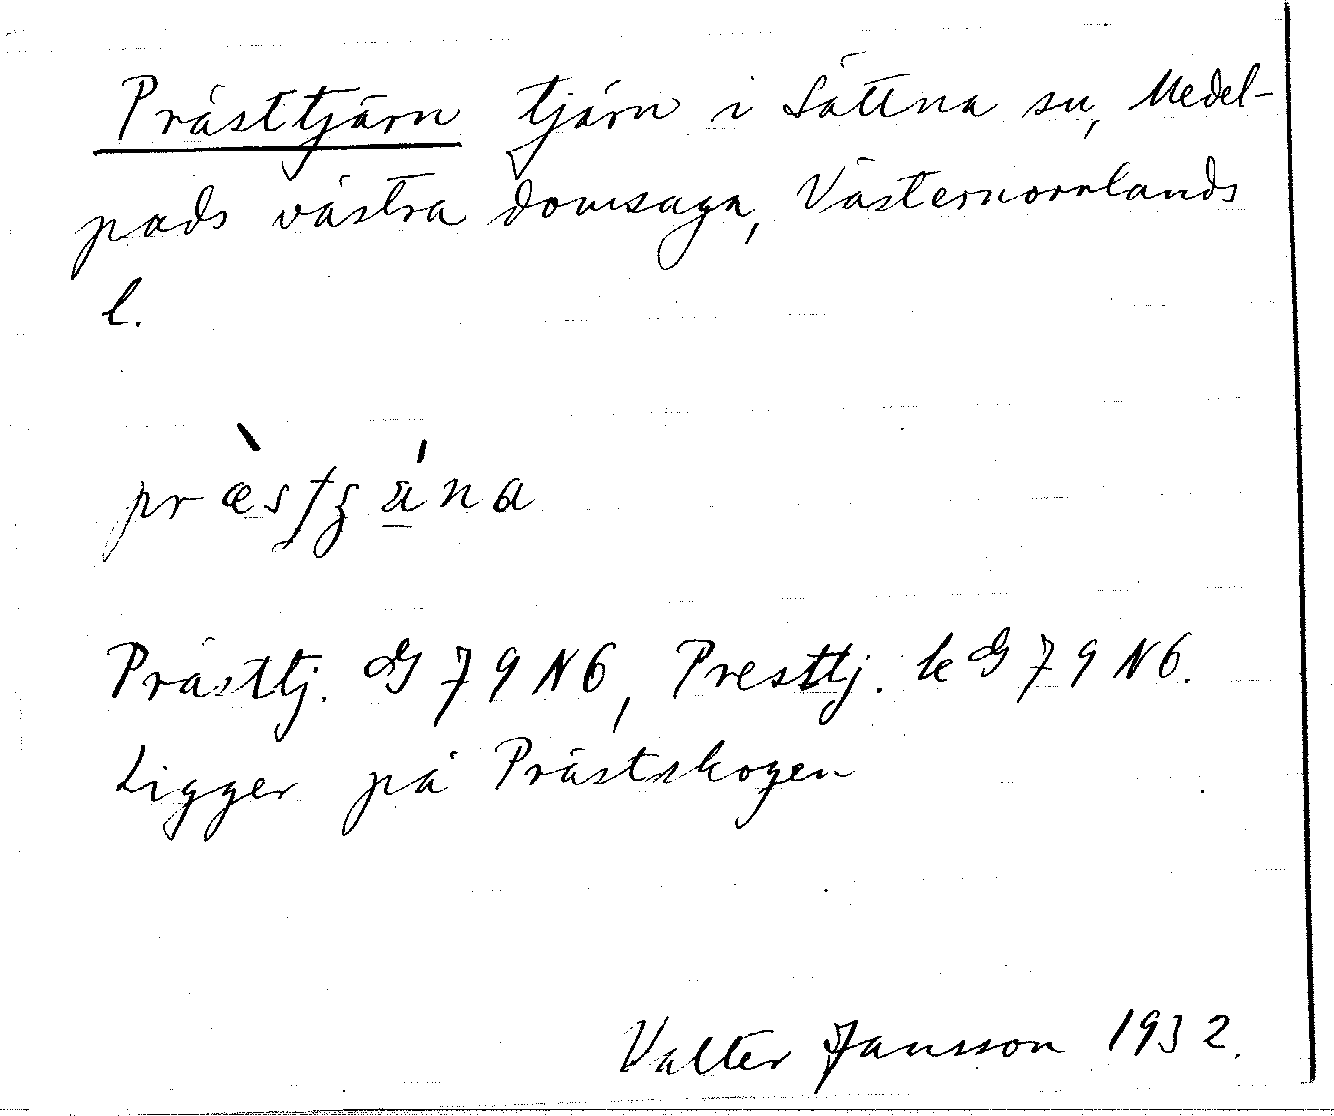 Prästtjärn tjärn i Sättna sn, Medel-
pads västra domsaga, Västernorrlands
l.
Prästtj. G 79 N6, Presttj. k G 79 N6.
Ligger på Prästskogen
Valter Jansson 1932.